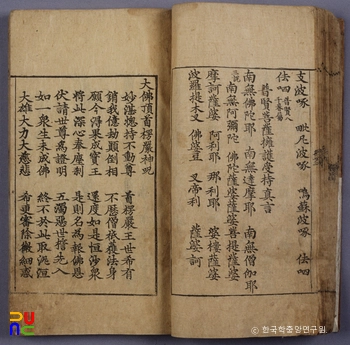 支波啄 毗尼波啄 嗚蘇波啄 佉呬
佉呬
普賢菩薩擁護受持真言
南無佛陀耶 南無達摩耶 南無僧伽耶
南無阿彌陀 佛陀薩婆薩婆菩提薩婆
摩訶薩婆 阿利耶 那利耶 婆樓薩婆
波羅提木叉 佛婆豆 又帝利 薩婆訶
大佛頂首楞嚴神呪
妙湛惣持不動尊 首楞嚴王世希有
銷我億劫顚倒相 不歷僧祇獲法身
願今得果成寶王 還度如是恒沙衆
將此深心奉塵刹 是則名為報佛恩
伏請世尊為證明 五濁惡世誓先入
如一衆生未成佛 終不於此取泥洹
大雄大力大慈悲 希更審除微細惑
한국학중앙연구원